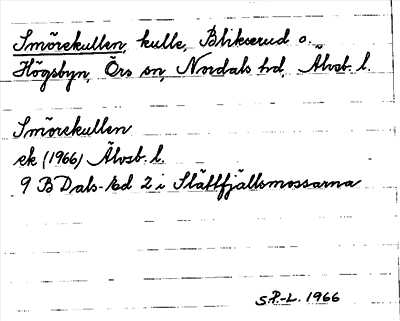 Smörekullen, kulle, Blikserud o.
Högsbyn, Örs sn, Nordals hd, Älvsb. l.
Smörekullen
ek (1966) Älvsb. l.
9 B Dals-Ed 2 i Slättfjällsmossarna
S.P.-L. 1966